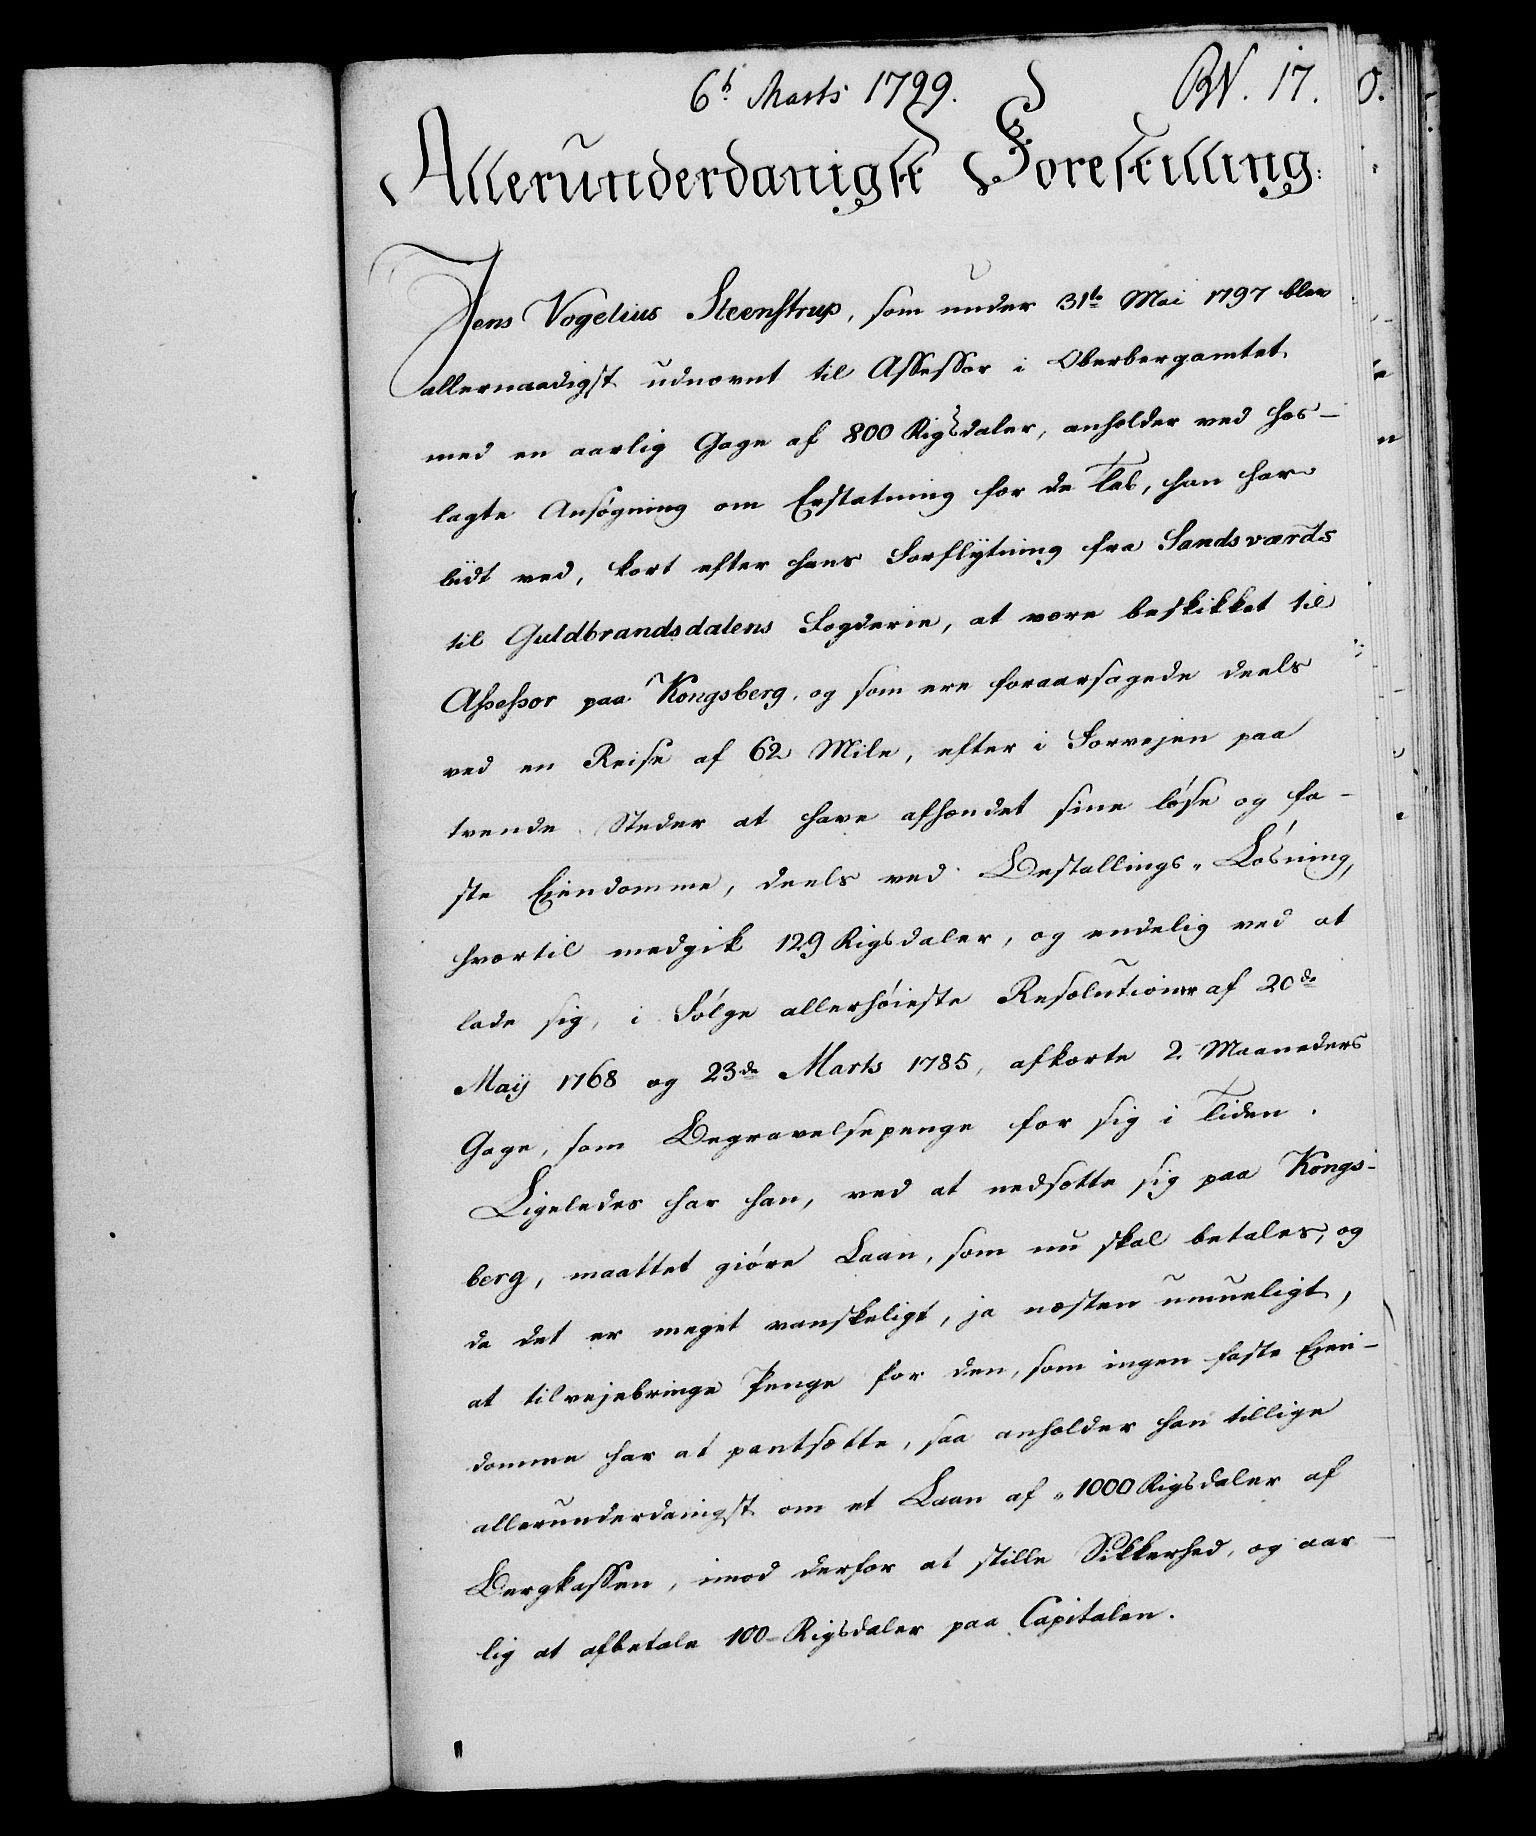 6t Marts 1799. BN. 17.
Allerunderdanigst Forestilling:
Jens Vogelius Steenstrup, som under 31te Mai 1797 blev
allernaadigst udnævnt til Assessor i Oberbergamtet
med en aarlig Gage af 800 Rigsdaler, anholder ved hos-
lagte Ansøgning om Erstatning for de Tab, han har
lidt ved, kort efter hans Forflytning fra Sandsværds
til Guldbrandsdalens Fogderie, at være beskikket til
Assessor paa Kongsberg, og som ere foraarsagede deels
ved en Reise af 62 Mile, efter i Forvejen paa
tvende Steder at have afhændet sine løse og fa-
ste Eiendomme, deels ved Bestallings-Løsning,
hvortil medgik 129 Rigsdaler, og endelig ved at
lade sig, i Følge allerhøieste Resolutioner af 20de
Maij 1768 og 23de Marts 1785, afkorte 2 Maaneders
Gage, som Begravelsepenge for sig i Tiden.
Ligeledes har han, ved at nedsætte sig paa Kongs-
berg, maattet giøre Laan, som nu skal betales, og
da det er meget vanskeligt, ja næsten umueligt,
at tilvejebringe Penge for den, som ingen faste Eien-
domme har at pantsætte, saa anholder han tillige
allerunderdanigst om et Laan af 1000 Rigsdaler af
Bergkassen, imod derfor at stille Sikkerhed, og aar
lig at afbetale 100 Rigsdaler paa Capitalen.